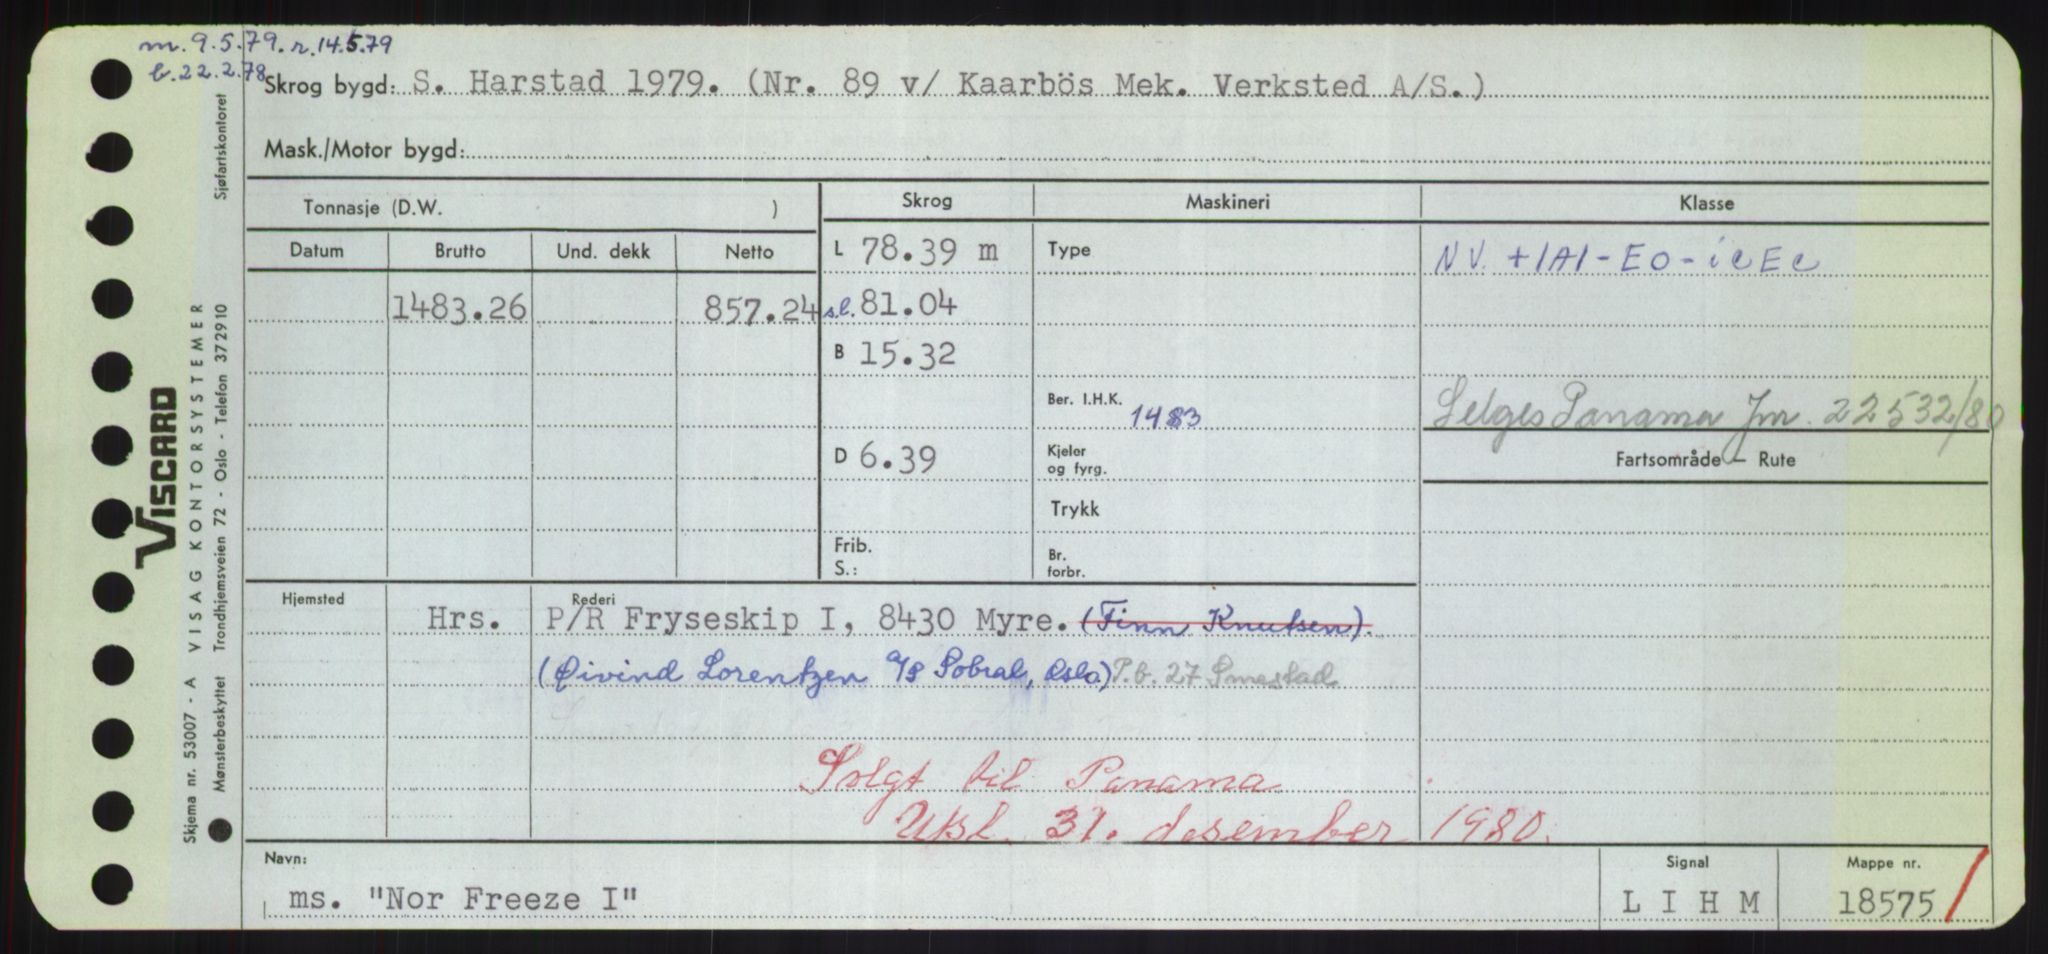 m. 9.5.79. r. 14.5.79
b. 22.2.78
Skrog bygd: S. Harstad 1979. (Nr. 89 v/ Kaarbös Mek. Verksted A/S.)
Mask./Motor bygd:
Tonnasje (D.W. )
Skrog
Maskineri
Klasse
Datum Brutto Und. dekk Netto
L 78.39 m
Type
NV. +1A1-EO-iceEc
1483.26 857.24
s.l. 81.04
B 15.32
Ber. I.H.K. 1483
Selges Panama Jnr. 22532/80
D 6.39
Kjeler
og fyrg.
Fartsområde – Rute
Trykk
Frib.
S.:
Br.
forbr.
Hjemsted
Rederi
Hrs. P/R Fryseskip I, 8430 Myre. (Finn Knutsen).
(Øivind Lorentzen a/s Sobral, Oslo.) P.b. 27 Smestad
Solgt til Panama
Utsl. 31. desember 1980.
Navn:
ms. "Nor Freeze I"
Signal
L I H M
Mappe nr.
18575
VISCARD
Skjema nr. 53007 - A VISAG KONTORSYSTEMER
Mønsterbeskyttet Trondhjemsveien 72 - Oslo - Telefon 372910 Sjøfartskontoret